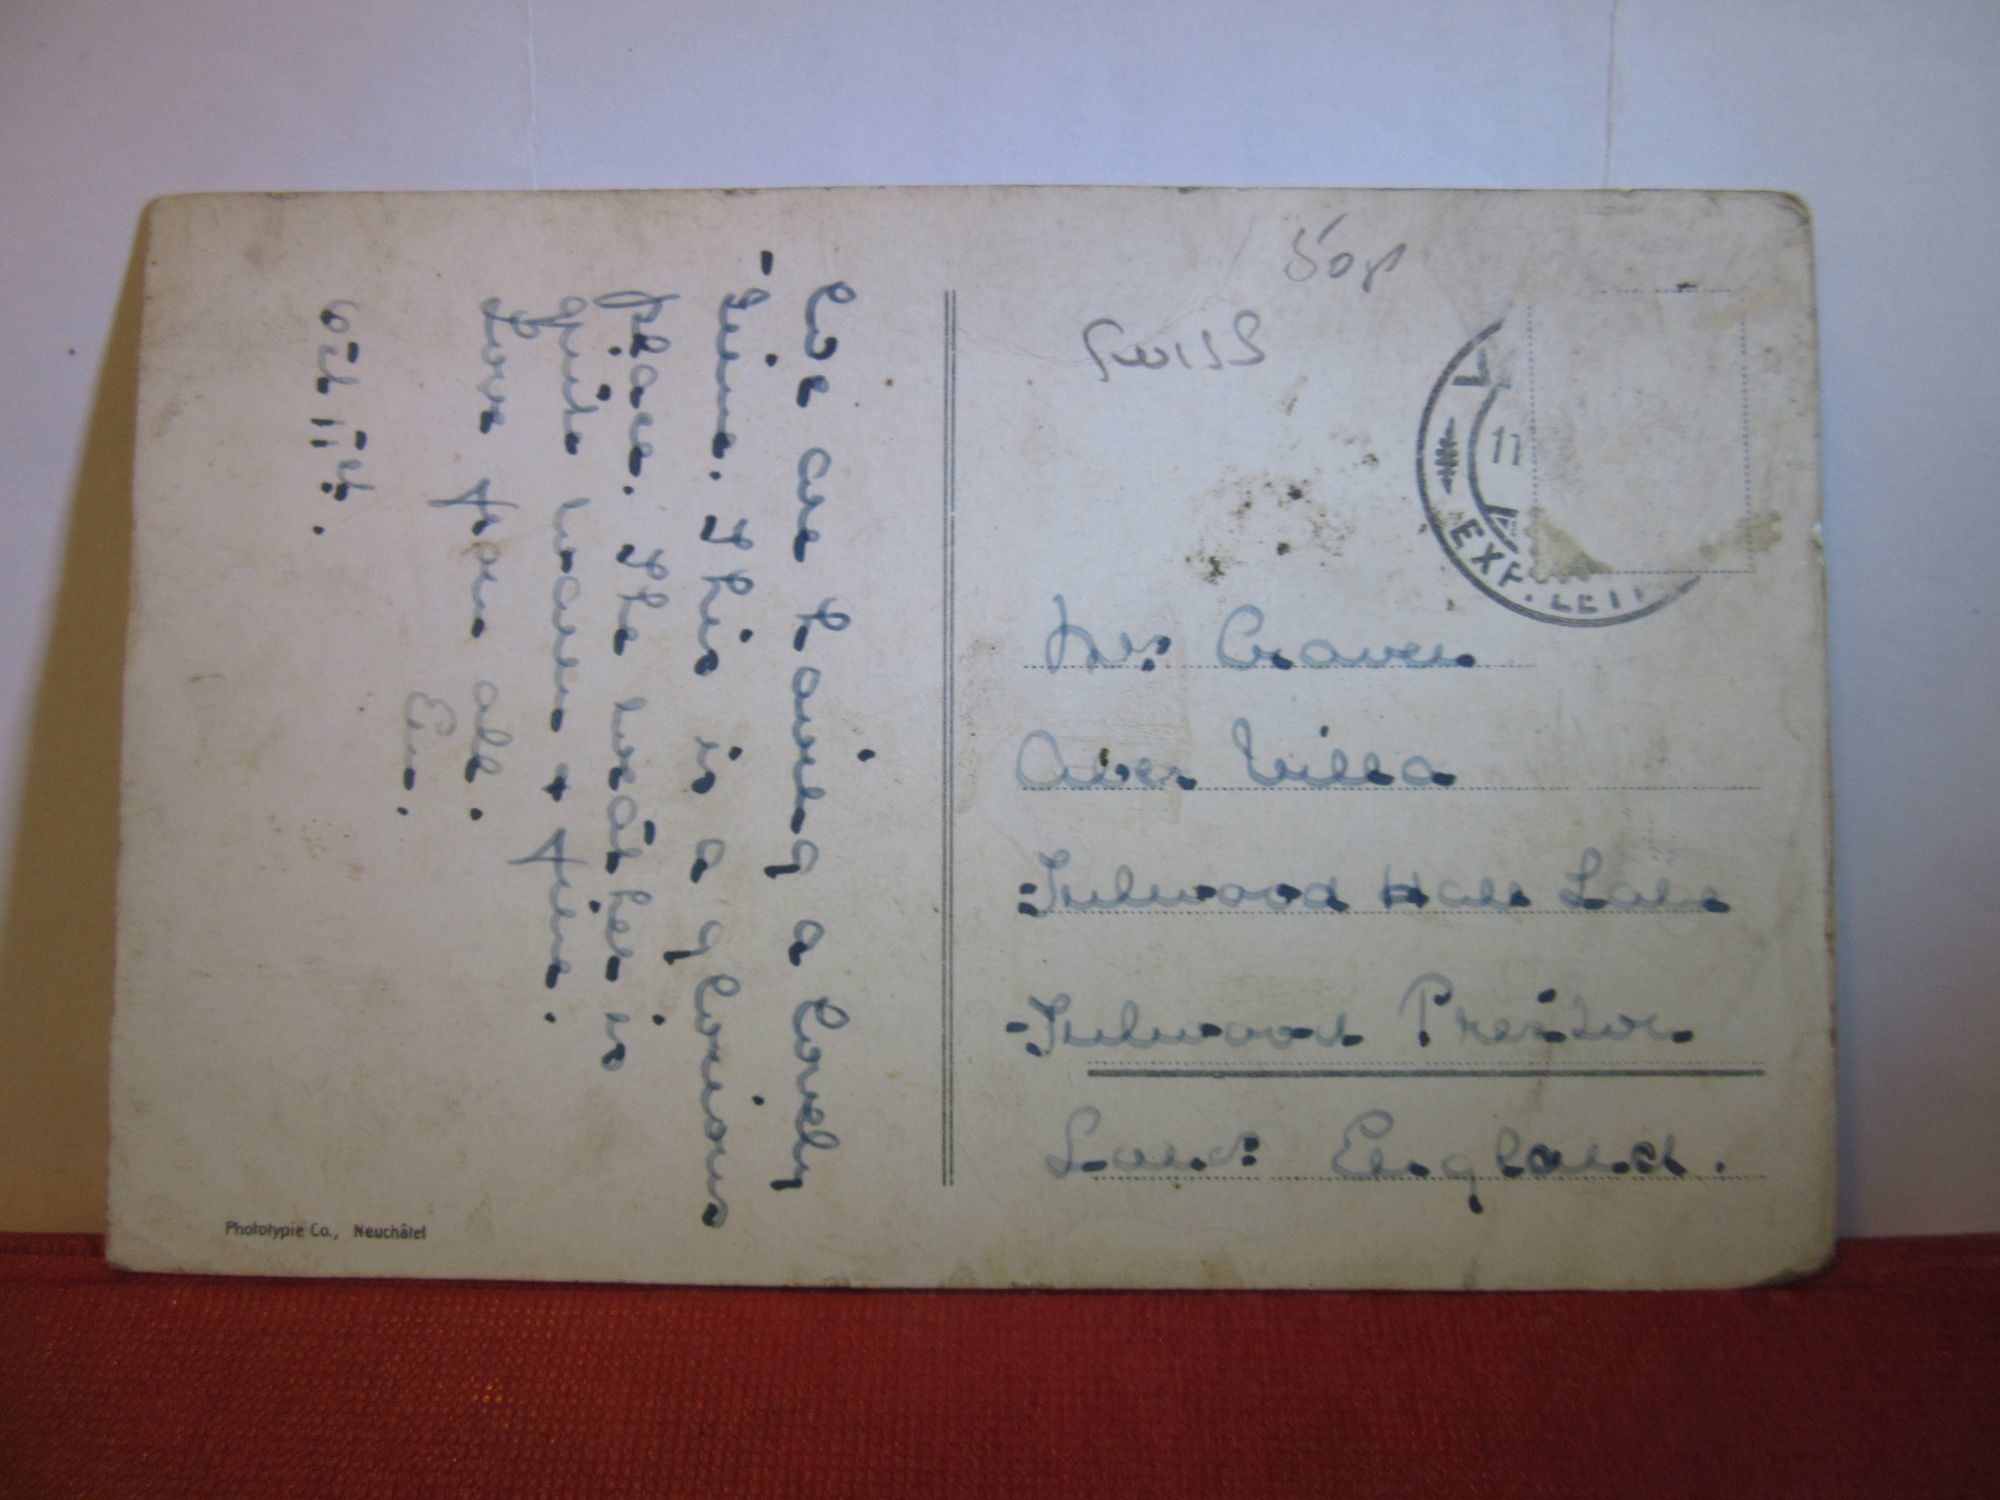 We are having a lovely
time. This is a glorious
place. The weather is
quite warm & fine.
Love from all.
Em.
Oct 11th.
Phototypie Co., Neuchâtel
50p
Swiss
11
EXP. LETT
Mrs Craven
Villa
Fulwood Hall Lane
Fulwood Preston
Lancs England.